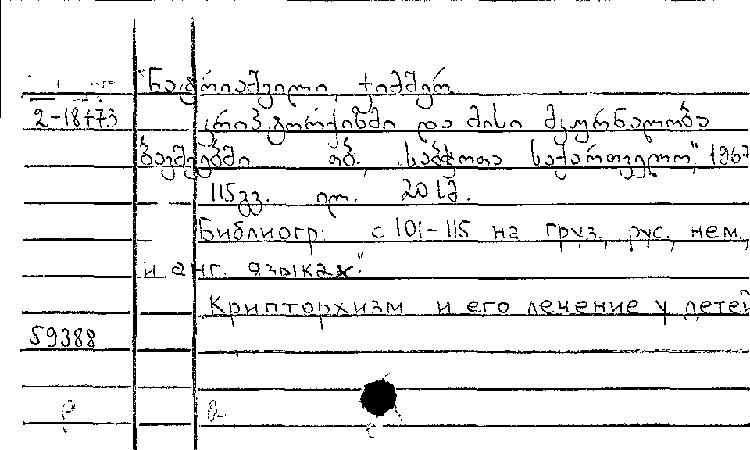 ნატროაშვილი
2-18473
კრიპტორქიზმი და მისი მკურნალობა
ბავშვებში თბ., საბჭოთა საქართველო", 1967
115გვ. ილ. 2013.
Библиогр: с 101-115 на груз, рус, нем,
и анг. языках."
Крипторхизм и его лечение у детей
59388